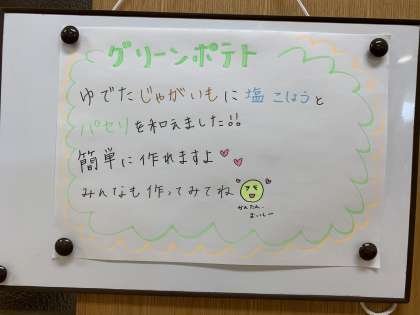 グリーンポテト
ゆでたじゃがいもに塩こしょうと
パセリを和えました!!
簡単に作れますよ♥♥
みんなも作ってみてね
かんたん
おいしー